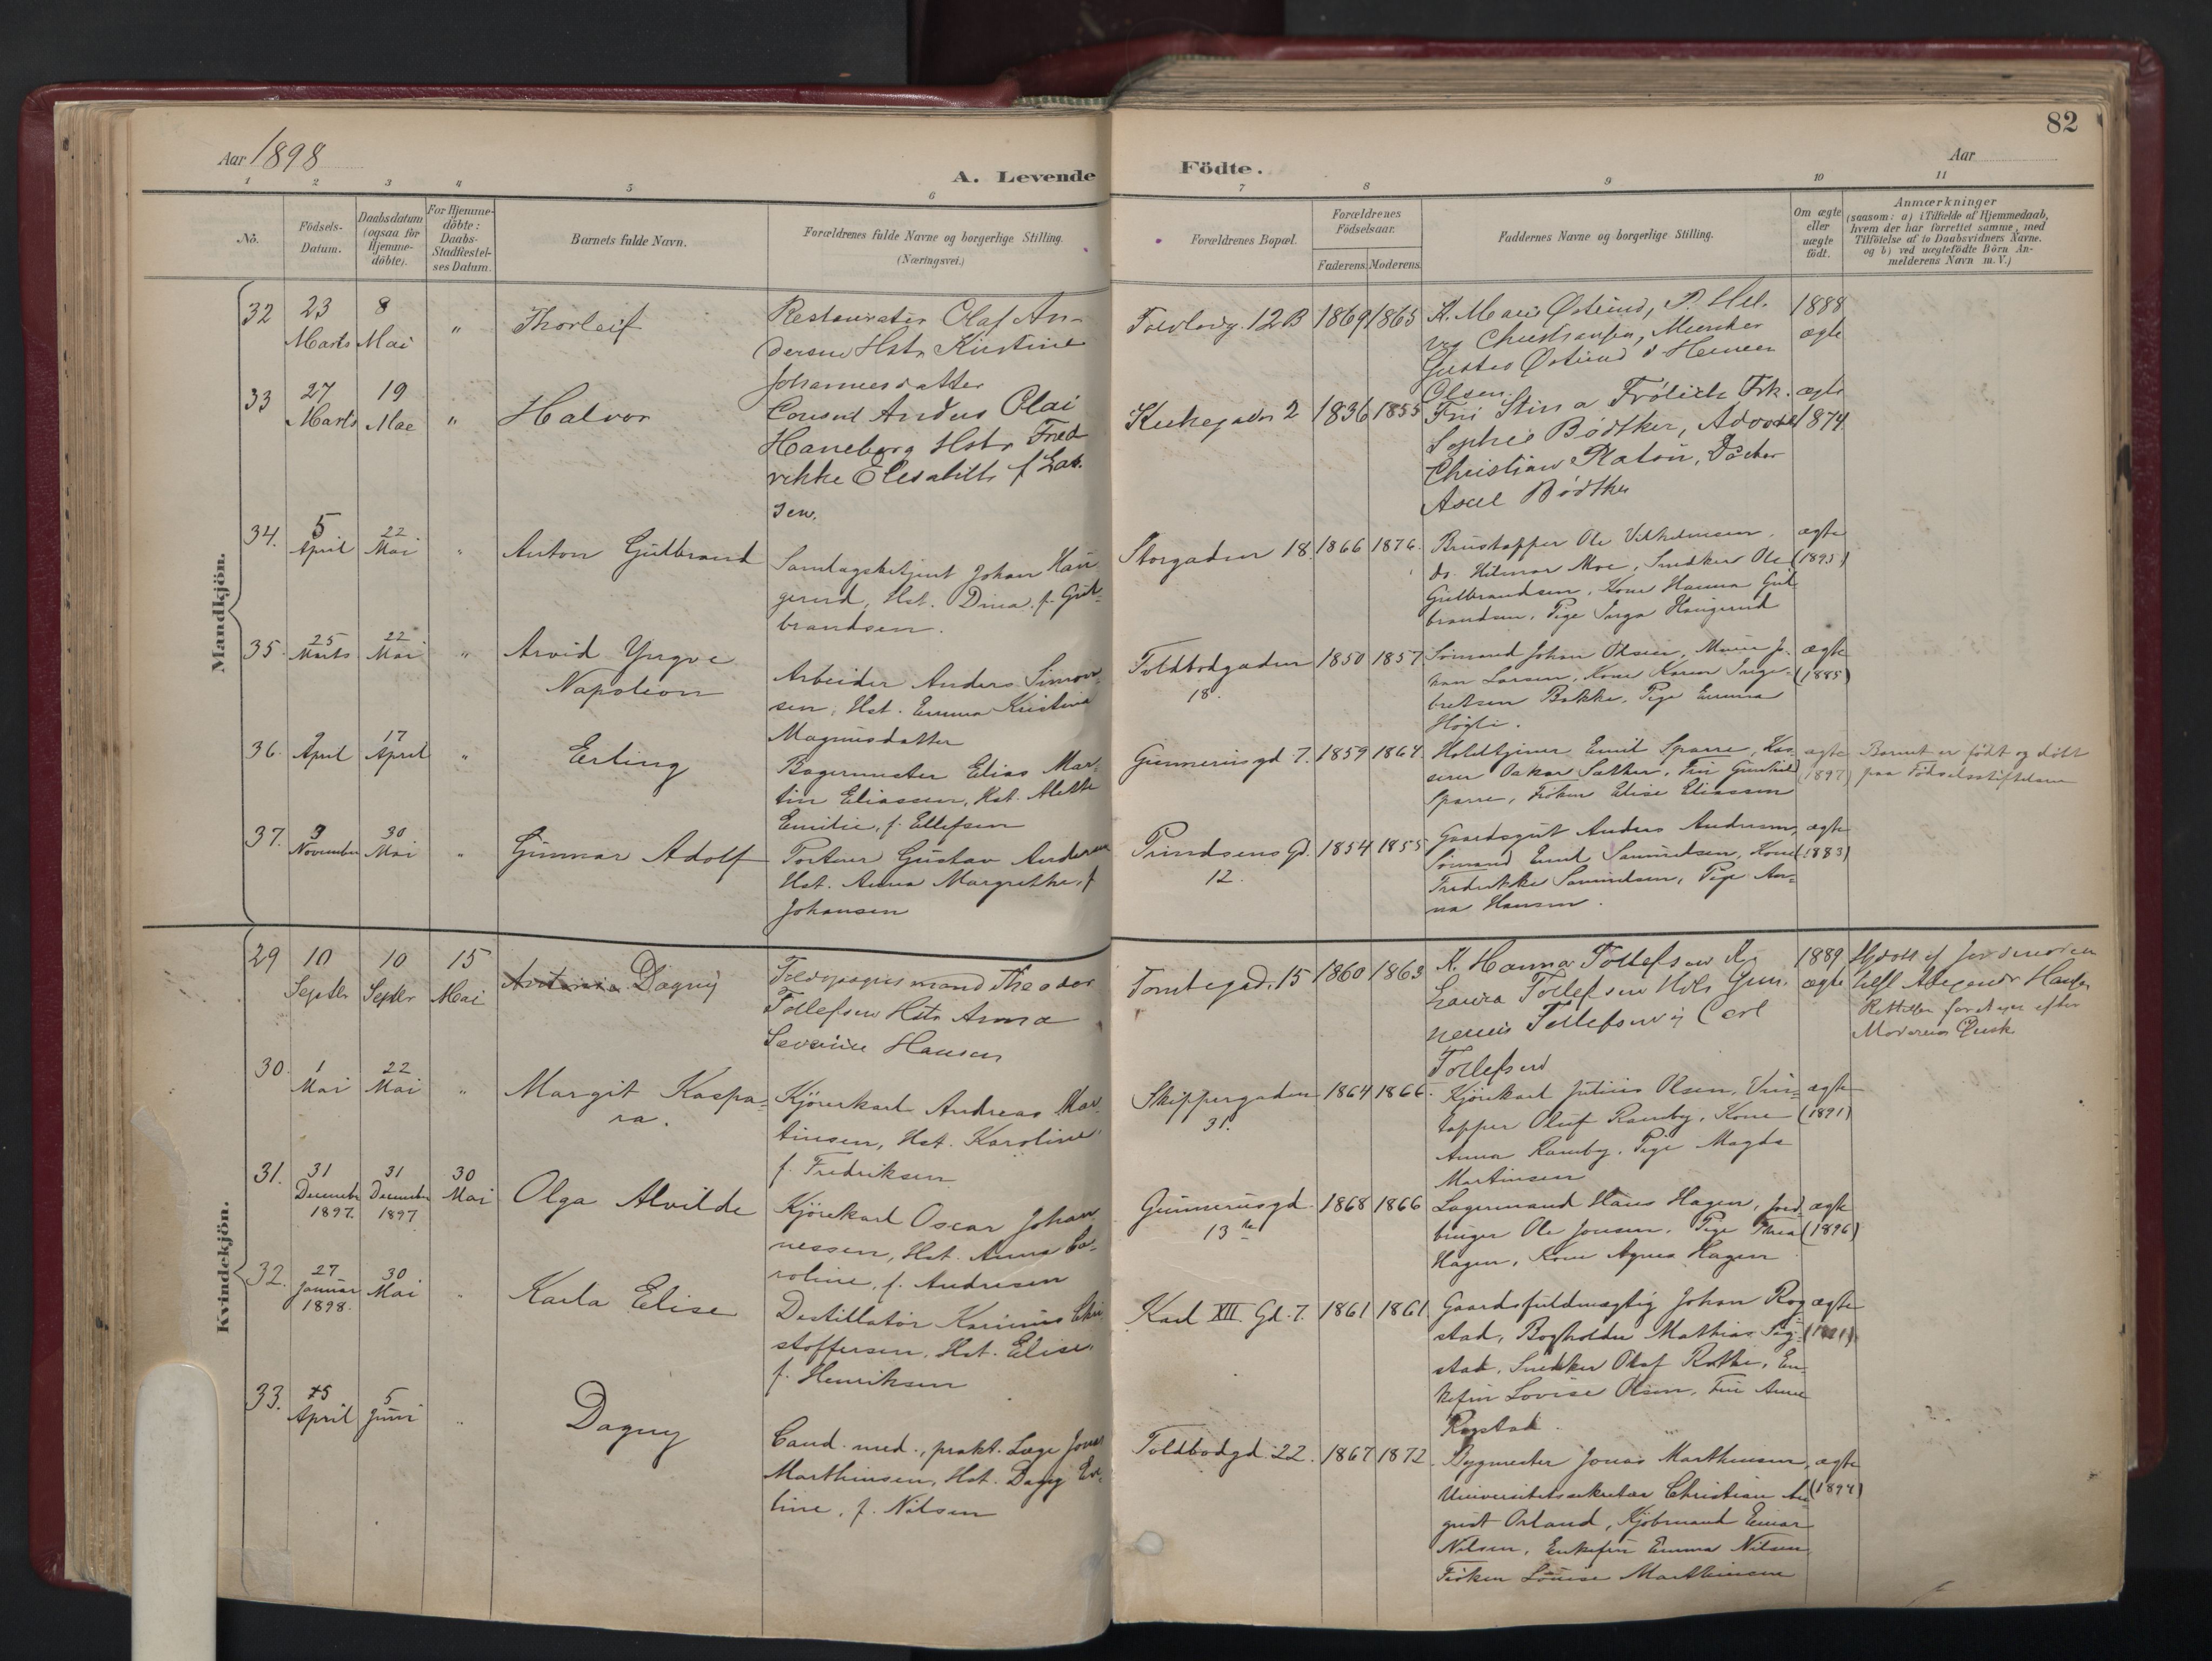 82
Aar 1898
Aar
A. Levende Födte.
1 2 3 4 5 6 7 8 9 10 11
No.
Födsels-
Datum.
Daabsdatum
(ogsaa för
Hjemme-
döbte).
For Hjemme-
döbte:
Daabs-
Stadfæstel-
ses Datum.
Barnets fulde Navn.
Forældrenes fulde Navne og borgerlige Stilling.
(Næringsvei.)
Forældrenes Bopæl.
Forældrenes
Födselsaar.
Faderens. Moderens.
Faddernes Navne og borgerlige Stilling.
Om ægte
eller
uægte
födt.
Anmærkninger
(saasom: a) i Tilfælde af Hjemmedaab,
hvem der har forrettet samme, med
Tilföielse af to Daabsvidners Navne.
og b) ved uægtefödte Börn An-
melderens Navn m. V.)
Mandkjön.
32 23 Marts 8 Mai " Thorleif
Restauratør Olaf An-
dersen Hstr Kirstine
Johannesdatter
12B 1869 1865
K. Marie Østlund, P. Hel-
Christiansen, Murer
Gustav Østlund & Herman
Olsen
1888
ægte
33 27 Marts 19 Mai " Halvor
Consul Andus Olai
Haneborg Hstr Fred
rikke Elisabeth f Lar-
sen.
Kirkegaden 2 1836 1855
Fru Stina Frölich Frk.
Sophie Bødtker, Advokat
Christian Platou,
Axel Bødtker
ægte
1874
34. 5 April 22 Mai " Anton Gulbrand
Samlagsbetjent Johan Hau-
gerud, Hst. Dina, f. Gul-
brandsen.
Storgaden 18. 1866 1876.
Brustapper Ole Vilhelmsen,
do. Hilmar Moe, Snedker Ole
Gulbrandsen, Kone Hanna Gul
brandsen, Pige Inga Haugerud
ægte
(1895)
35. 25 Marts 22 Mai " Arvid Yngve
Napoleon
Arbeider Anders Simon-
sen, Hst. Emma Kristina
Magnusdatter
Toldbodgaden
18.
1850 1857
Sömand Johan Olsen, Murer Jo-
han Larsen, Kone Karen Inge-
bretsen Bakke, Pige Emma
Högli.
ægte
(1885)
36. 9 April 17 April " Erling
Bagermester Elias Mar-
tin Eliassen, Hst. Alette
Emilie, f. Ellefsen
Gunnerusgd 7. 1859 1864.
Holdtjener Emil Sparre, Kas-
serer Oskar Sæther, Fru Gunhild
Sparre, Fröken Elise Eliassen
ægte
(1897)
Barnet er födt og döbt
paa Födselsstiftelsen
37. 3 November 30 Mai " Gunnar Adolf
Portner Gustav Andersen
Hst. Anna Margrethe, f
Johansen
Prindsens Gd.
12.
1854 1855
Gaardsgut Anders Andersen,
Sömand Emil Samuelsen, Kone
Fredrikke Samuelsen, Pige An-
na Hansen.
ægte
(1883)
Kvindekjön.
29 10 Septbr 10 Septbr 15 Mai Antonie Dagny
Theodor
Tollefsen Hstr Anna
Severine Hansen
Tomtegad. 15 1860 1863
K. Hanna Tollefsen
Laura Tollefsen
Tollefsen og Carl
Tollefsen
1889
ægte
Hjdöbt af Jordmoder
Rettelse foretagen efter
Moderens Önske
30. 1 Mai 22 Mai " Margit Kaspa-
ra.
Kjörekarl Andreas Mar-
tinsen, Hst. Karoline,
f. Fredriksen
Skippergaden
31.
1864 1866.
Kjörekarl Julius Olsen, Vin-
tapper Oluf Ramby, Kone
Anna Ramby, Pige Magda
Martinsen
ægte
(1891)
31. 31 December 1897. 31 December 1897 30 Mai Olga Alvilde
Kjörekarl Oscar Johan-
nessen, Hst. Anna Ca-
roline, f. Andresen
Gunnerusgd.
13
1868 1866
Lagermand Hans Hagen, Jord-
bruger Ole Jonsen, Pige Thea
Hagen, Kone Agnes Hagen
ægte
(1896)
32. 27 Januar 1898. 30 Mai " Karla Elise
Destillatör Karinius Chri
stoffersen, Hst. Elise,
f. Henriksen
Karl XII. Gd. 7. 1861 1861
Gaardsfuldmægtig Johan Rog-
stad, Bogholder Mathias Rog-
stad, Snedker Olaf Rothe, En-
kefru Lovise Olsen, Fru Anna
Rogstad.
ægte
33. 5 April 5 Juni " Dagny
Cand. med., prakt. Læge Jonas
Marthinsen, Hst. Dagny Ev-
line, f. Nilsen
Toldbodgd. 22. 1867 1872
Bygmester Jonas Marthinsen,
Universitetssekretær Christian Au
gust Orland, Kjöbmand Einar
Nilsen, Enkefru Emma Nilsen,
Fröken Louise Marthinsen
ægte
(1894)